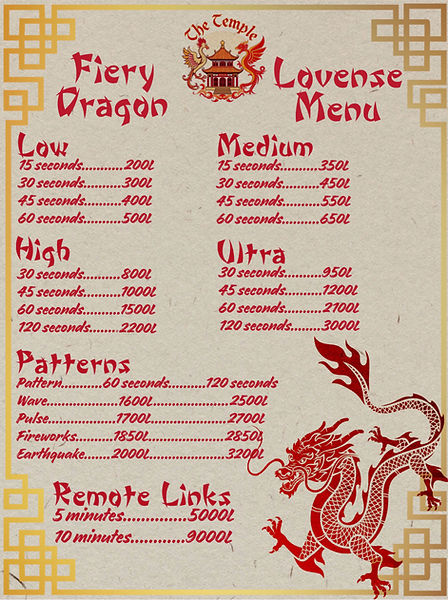 The Temple
Fiery Dragon
Lovense Menu
Low
15 seconds..........200L
30 seconds..........300L
45 seconds..........400L
60 seconds..........500L
Medium
15 seconds..........350L
30 seconds..........450L
45 seconds..........550L
60 seconds..........650L
High
30 seconds..........800L
45 seconds..........1000L
60 seconds..........1500L
120 seconds..........2200L
Ultra
30 seconds..........950L
45 seconds..........1200L
60 seconds..........2100L
120 seconds..........3000L
Patterns
Pattern..........60 seconds..........120 seconds
Wave..........1600L..........2500L
Pulse..........1700L..........2700L
Fireworks..........1850L..........2850L
Earthquake..........2000L..........3200L
Remote Links
5 minutes..........5000L
10 minutes..........9000L